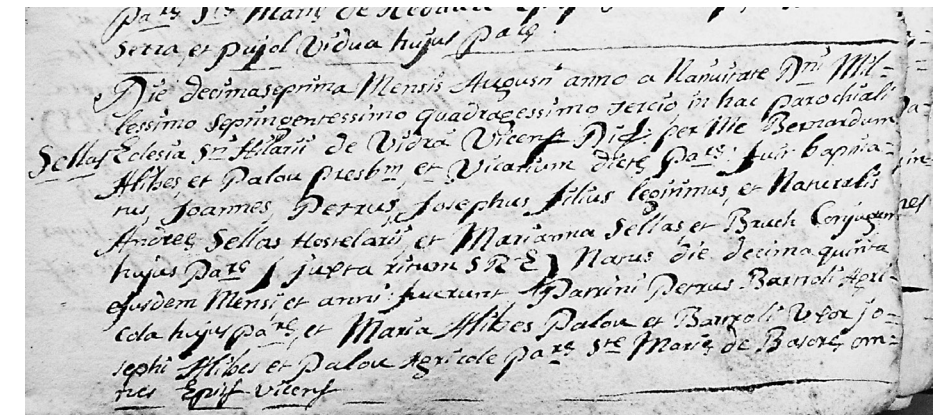 par.ꝫ Stꝫ Mariꝫ de
Serra et Pujol Vidua hujus Par.ꝫ
Die decimaseptima Mensis Augusti anno a Nativitate Dni Mil-
lessimo septingentessimo quadragessimo tercio in hac parochiali
Sellas Eclesia Sti Hilarii de Vidrá Vicens Diꝫ per Me Bernardum
Alibes et Palou presbm, et Vicarium dictꝫ Parꝫ. fuit baptiza-
tus, Joannes, Petrus, Josephus filius legitimus, et Naturalis
Andreꝫ Sellas Hostelarii et Marianna Sellas et Bruch Conjugum
hujus Parꝫ ( juxta ritum S R E ) Natus die decima quinta
ejusdem Mensi et anni: fuerunt Patrini Petrus Bartroli Agri-
cola hujus parꝫ, et Maria Alibes Palou et Bartroli Uxor jo-
sephi Alibes et Palou Agricole Parꝫ Stꝫ Mariꝫ de Basorꝫ om-
nes Episꝫ Vicens